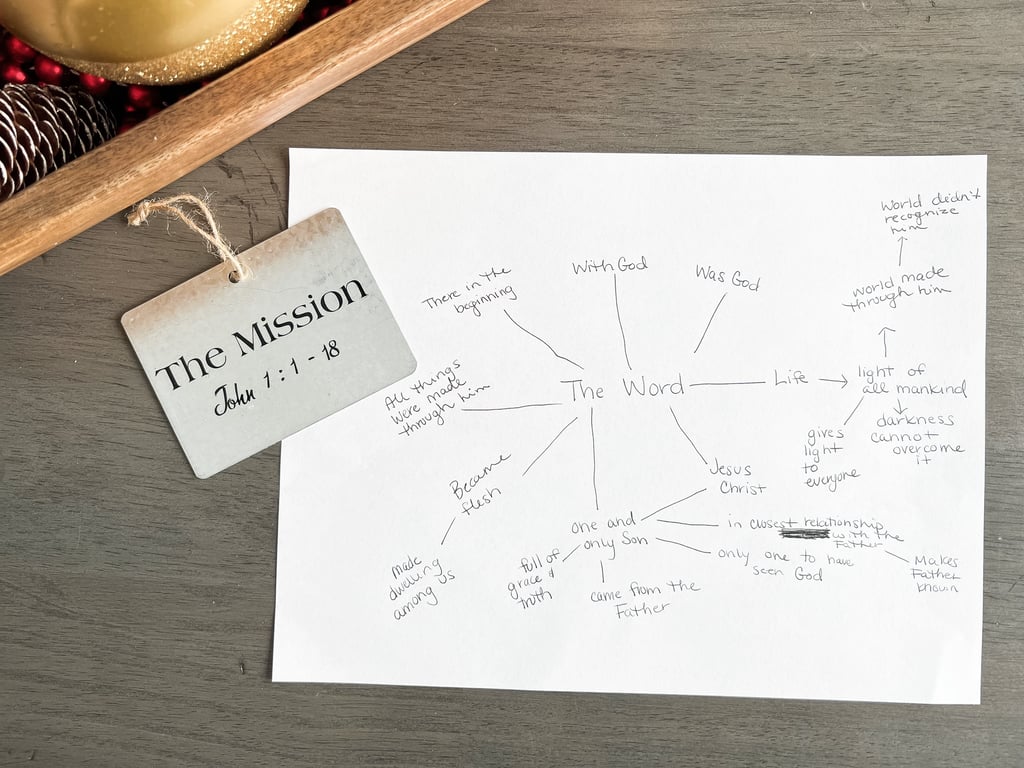 The Mission
John 1:1-18
There in the
beginning
With God
Was God
World didn't
recognize
him
world made
through him
The Word
Life
light of
all mankind
darkness
cannot
overcome
it
gives
light
to
everyone
All things
were made
through him
Became
flesh
made
dwelling
among us
Jesus
Christ
one and
only Son
full of
grace &
truth
came from the
Father
in closest relationship
with the
Father
only one to have
seen God
Makes
Father
known